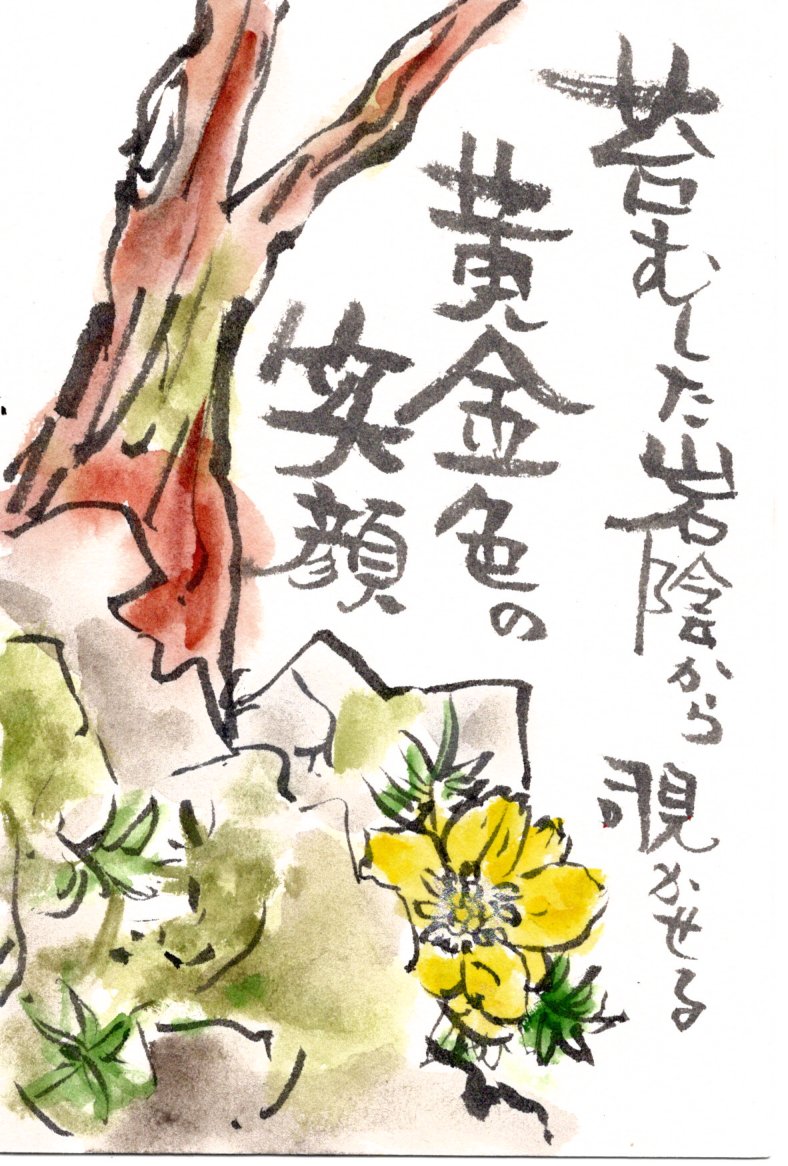 苔むした岩陰から覗かせる
黄金色の
笑顔